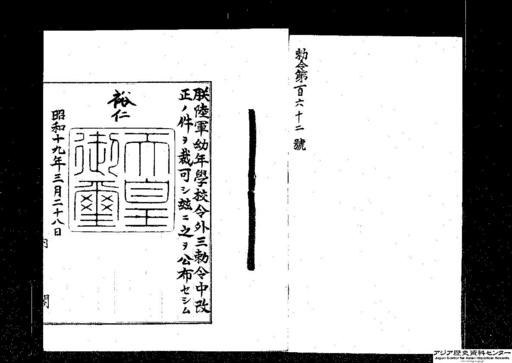 勅令第百六十二號
朕陸軍幼年學校令外三勅令中改
正ノ件ヲ裁可シ玆ニ之ヲ公布セシム
裕仁
天皇
御璽
昭和十九年三月二十八日
内閣
アジア歴史資料センター
Japan Center for Asian Historical Records